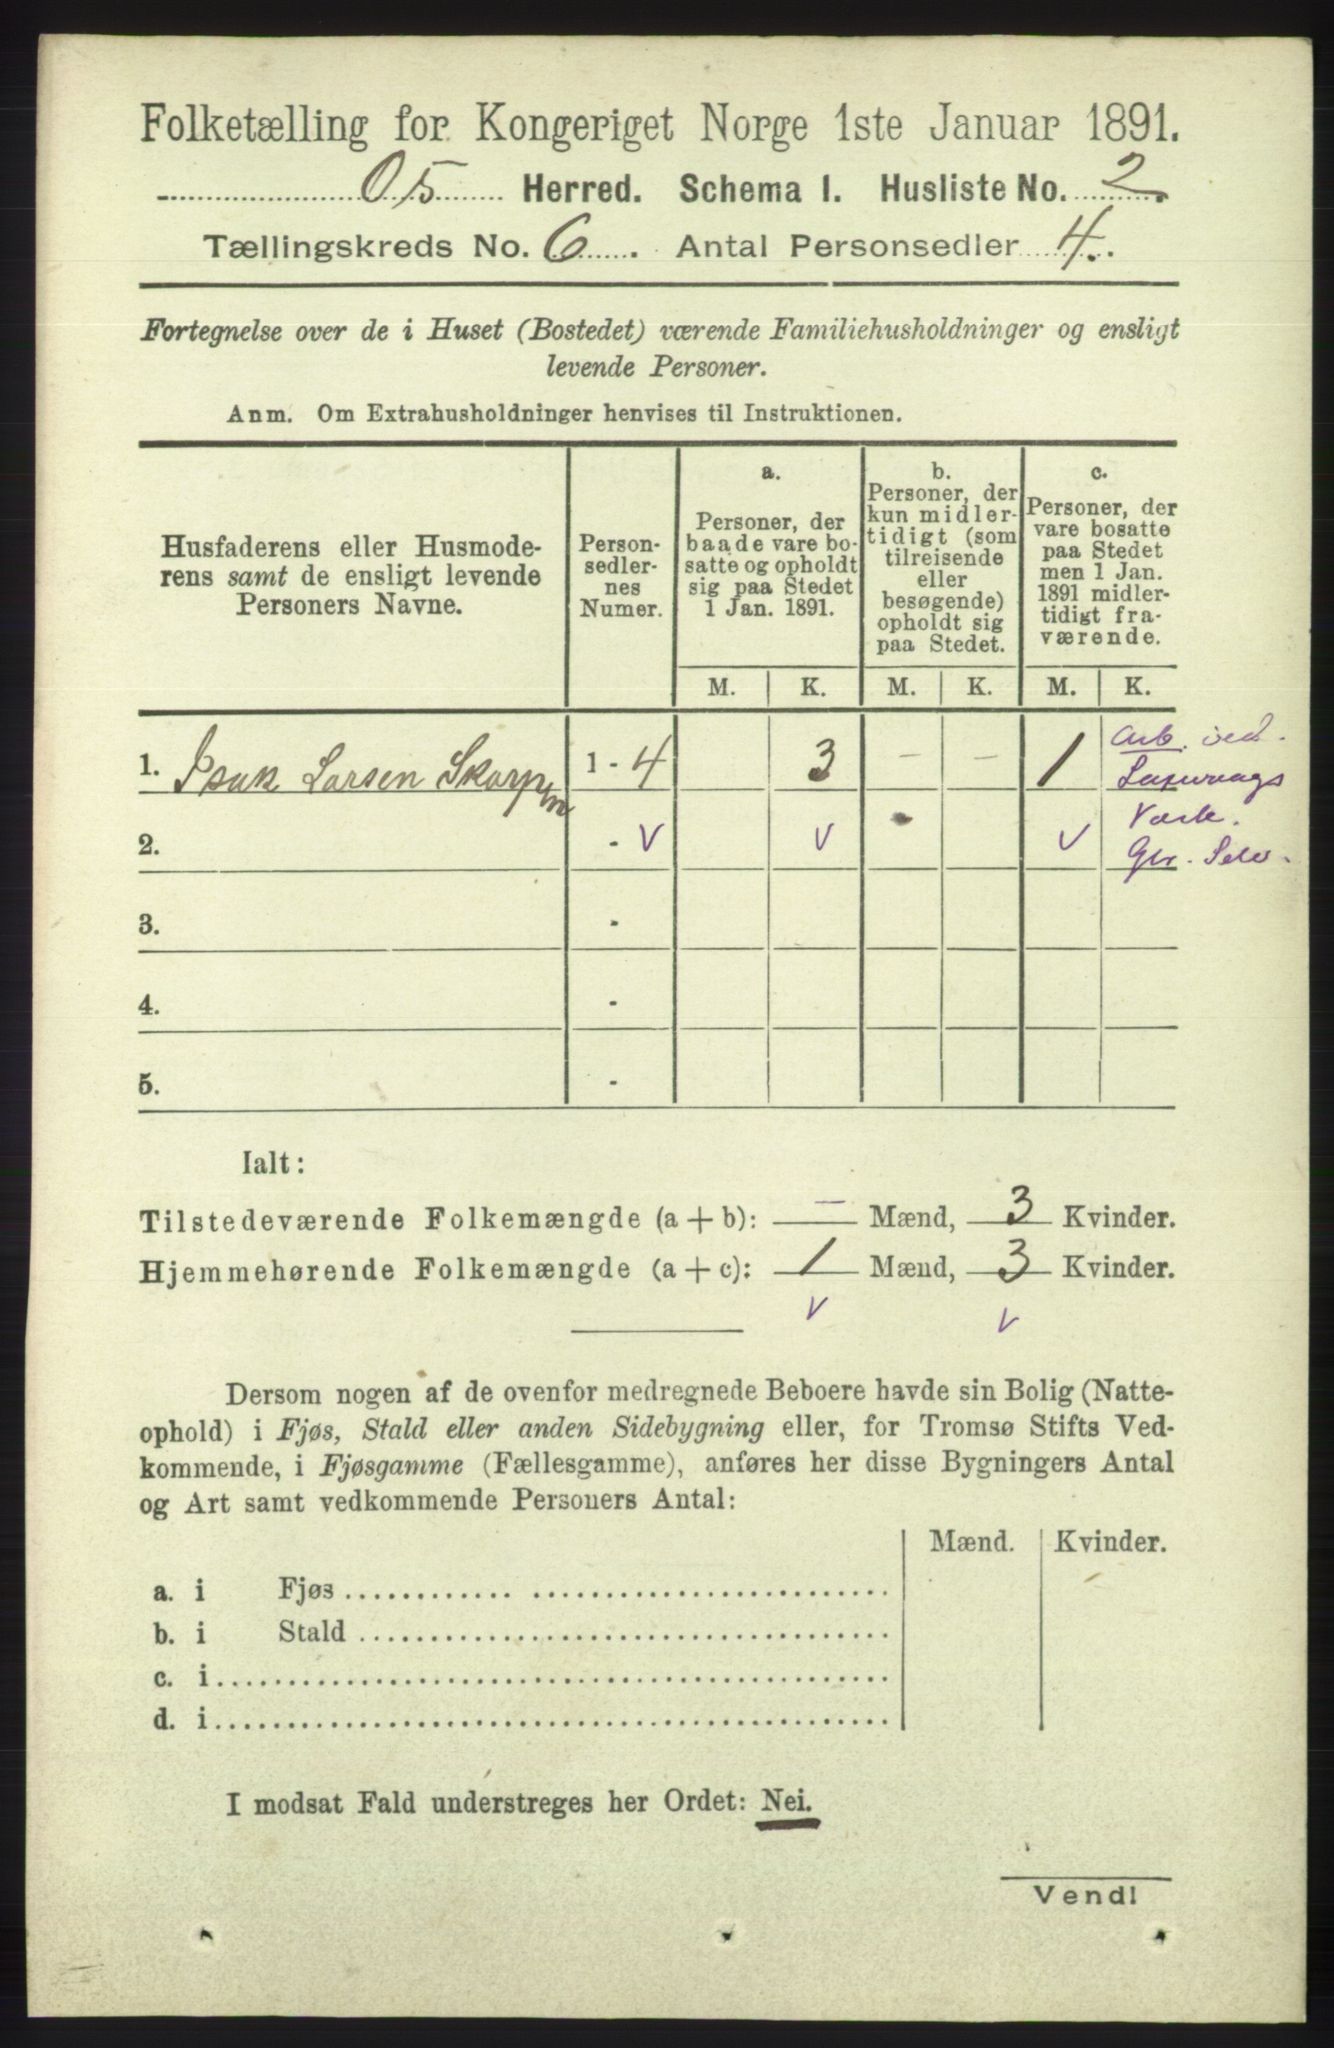 Folketælling for Kongeriget Norge 1ste Januar 1891.
Os Herred. Schema 1. Husliste No. 2.
Tællingskreds No. 6. Antal Personsedler 4.
Fortegnelse over de i Huset (Bostedet) værende Familiehusholdninger og ensligt
levende Personer.
Anm. Om Extrahusholdninger henvises til Instruktionen.
Husfaderens eller Husmode-
rens samt de ensligt levende
Personers Navne.
Person-
sedler-
nes
Numer.
a.
Personer, der
baade vare bo-
satte og opholdt
sig paa Stedet
1 Jan. 1891.
b.
Personer, der
kun midler-
tidigt (som
tilreisende
eller
besøgende)
opholdt sig
paa Stedet.
c.
Personer, der
vare bosatte
paa Stedet
men 1 Jan.
1891 midler-
tidigt fra-
værende.
M. K. M. K. M. K.
1. Isak Larsen Skorpen 1 - 4 3 - - 1 Arb. ved
2. - v v v
Værk.
3. -
4. -
5. -
Ialt:
Tilstedeværende Folkemængde (a + b): — Mænd, 3 Kvinder.
Hjemmehørende Folkemængde (a + c): 1 Mænd, 3 Kvinder.
v v
Dersom nogen af de ovenfor medregnede Beboere havde sin Bolig (Natte-
ophold) i Fjøs, Stald eller anden Sidebygning eller, for Tromsø Stifts Ved-
kommende, i Fjøsgamme (Fællesgamme), anføres her disse Bygningers Antal
og Art samt vedkommende Personers Antal:
Mænd. Kvinder.
a. i Fjøs
b. i Stald
c. i
d. i
I modsat Fald understreges her Ordet: Nei.
Vend!